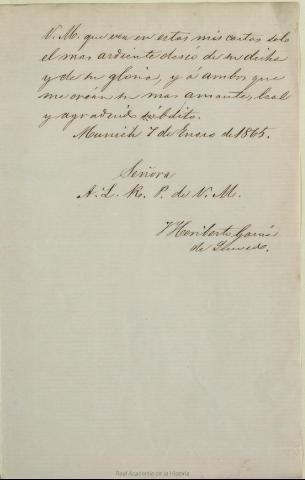 V. M. que vea en estas mis cartas solo
el mas ardiente deseo de su dicha
y de su gloria, y á ambos que
me crean su mas amante, leal
y agradecido súbdito.
Munich 7 de Enero de 1865.
Señora
A. L. R. P. de V. M.
J Heriberto García
de Quevedo.
Real Academia de la Historia